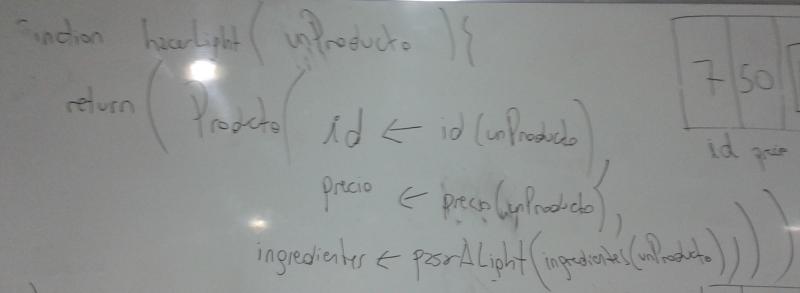 function hacerLight( unProducto ){
return ( Producto( id ← id(unProducto),
precio ← precio(unProducto),
ingredientes ← pasarALight(ingredientes(unProducto)))))
7 50
id precio